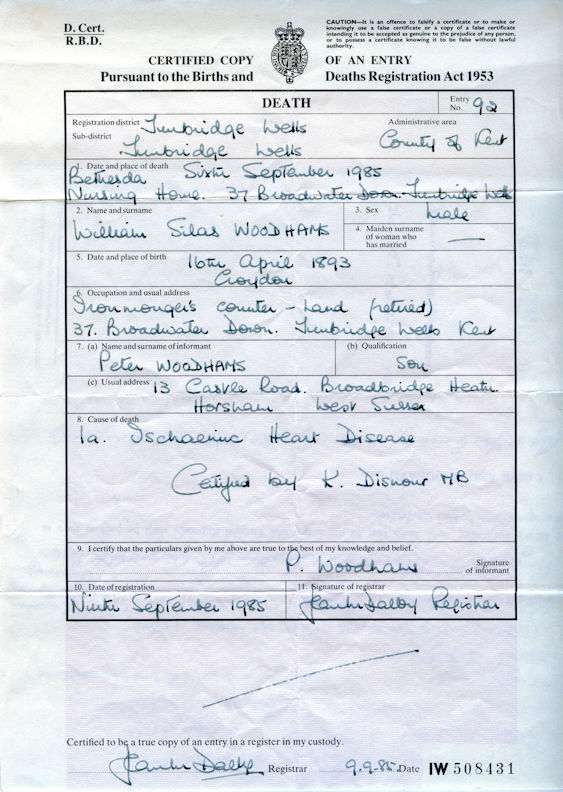 D. Cert.
R.B.D.
CAUTION—It is an offence to falsify a certificate or to make or
knowingly use a false certificate or a copy of a false certificate
intending it to be accepted as genuine to the prejudice of any person,
or to possess a certificate knowing it to be false without lawful
authority.
CERTIFIED COPY OF AN ENTRY
Pursuant to the Births and Deaths Registration Act 1953
DEATH
Entry No. 92
Registration district Tunbridge Wells
Administrative area
Sub-district Tunbridge Wells
County of Kent
1. Date and place of death Sixth September 1985
Bethesda
Nursing Home. 37 Broadwater Down. Tunbridge Wells
2. Name and surname
William Silas WOODHAMS
3. Sex Male
4. Maiden surname
of woman who
has married
5. Date and place of birth 16th April 1893
Croydon
6. Occupation and usual address
Ironmonger's counter-hand (retired)
37. Broadwater Down. Tunbridge Wells Kent
7. (a) Name and surname of informant
Peter WOODHAMS
(b) Qualification
Son
(c) Usual address 13 Castle Road. Broadbridge Heath.
Horsham West Sussex
8. Cause of death
1a. Ischaemic Heart Disease
Certified by K. MB
9. I certify that the particulars given by me above are true to the best of my knowledge and belief.
P. Woodhams Signature of informant
10. Date of registration
Ninth September 1985
11. Signature of registrar
Dalby Registrar
Certified to be a true copy of an entry in a register in my custody.
Dalby Registrar 9.9.85 Date IW 508431